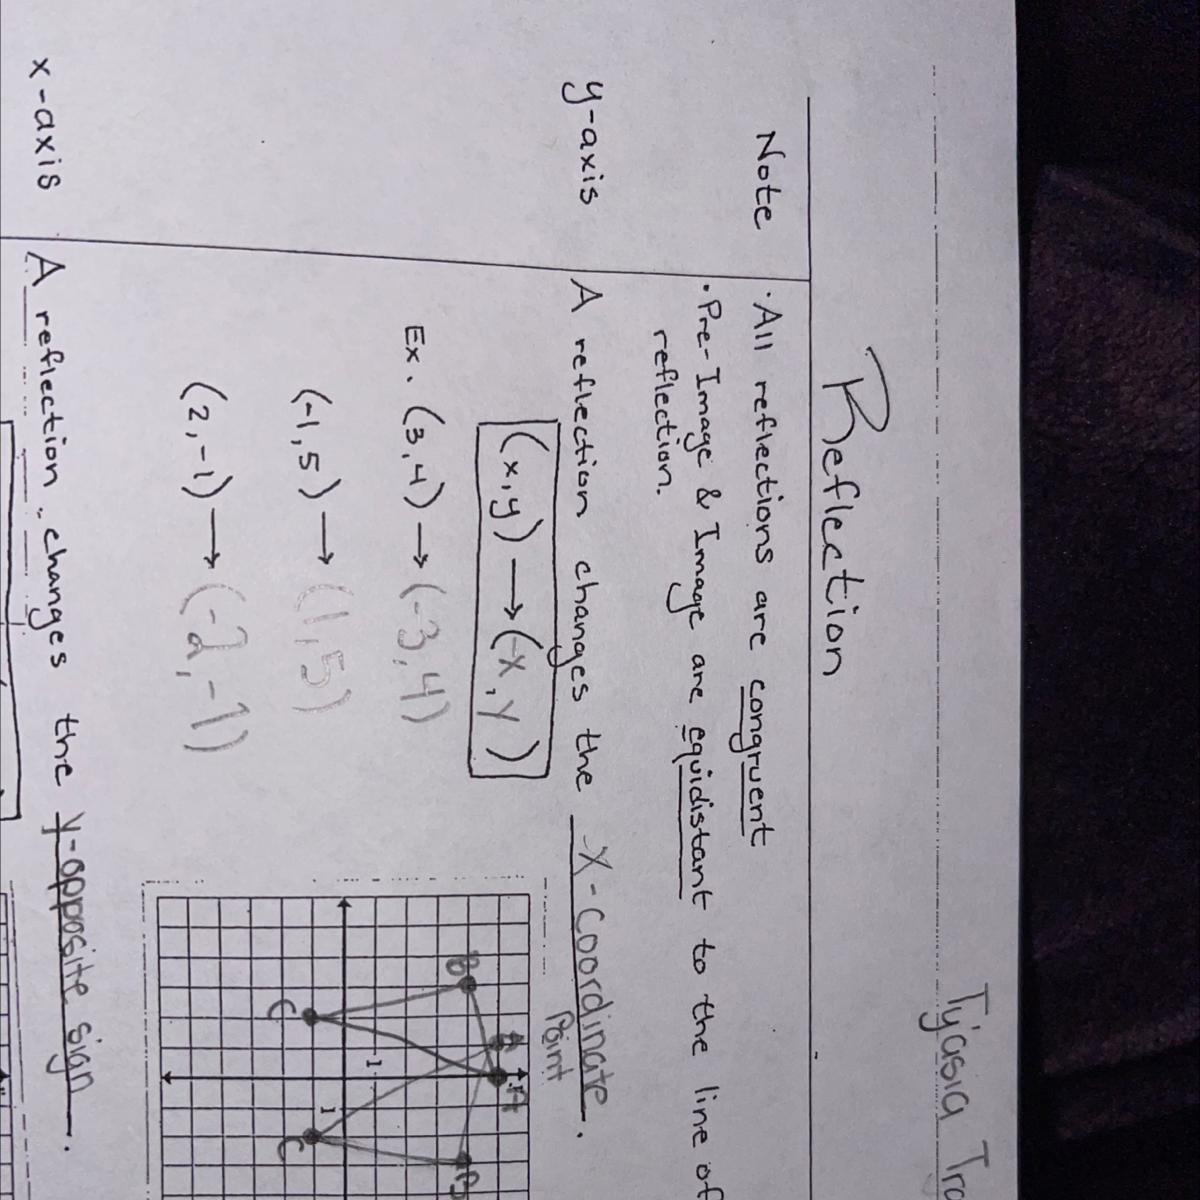 Ty'asia Tra
Reflection
Note
• All reflections are congruent
• Pre-Image & Image are equidistant to the line of
reflection.
y-axis
A reflection changes the X-Coordinate.
(x,y) → (-x, y)
Point
Ex. (3,4) → (-3,4)
(-1,5) → (1,5)
(2,-1) → (-2,-1)
A
A
B
B
-1
1
C
C
x-axis
A reflection changes the y-opposite sign.